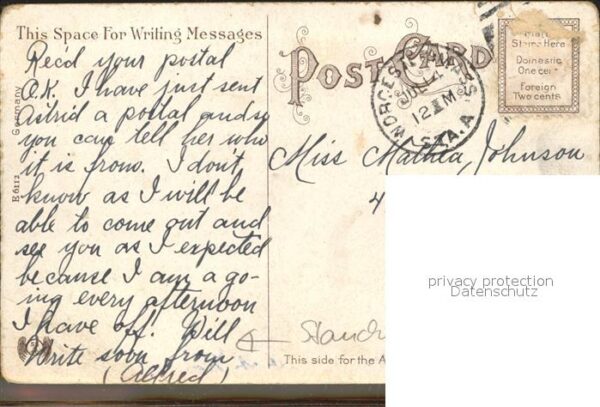 This Space For Writing Messages
Rec'd your postal
O.K. I have just sent
Astrid a postal and so
you can tell her who
it is from. I don't
know as I will be
able to come out and
see you as I expected
because I am a go-
ing every afternoon
I have off. Will
Write soon from
(Alfred)
Germany
E6112
POST CARD
WORCESTER, MASS.
12 M
STA. A.
Place
Stamp Here
Domestic
One cent
Foreign
Two cents
Miss Mathea Johnson
4
privacy protection
Datenschutz
This side for the A